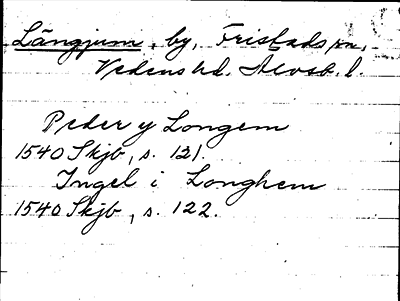 Längjum, by, Fristads sn,
Vedens hd. Älvsb. l.
Peder y Longem
1540 Skjb, s. 121.
Ingel i Longhem
1540 Skjb, s. 122.